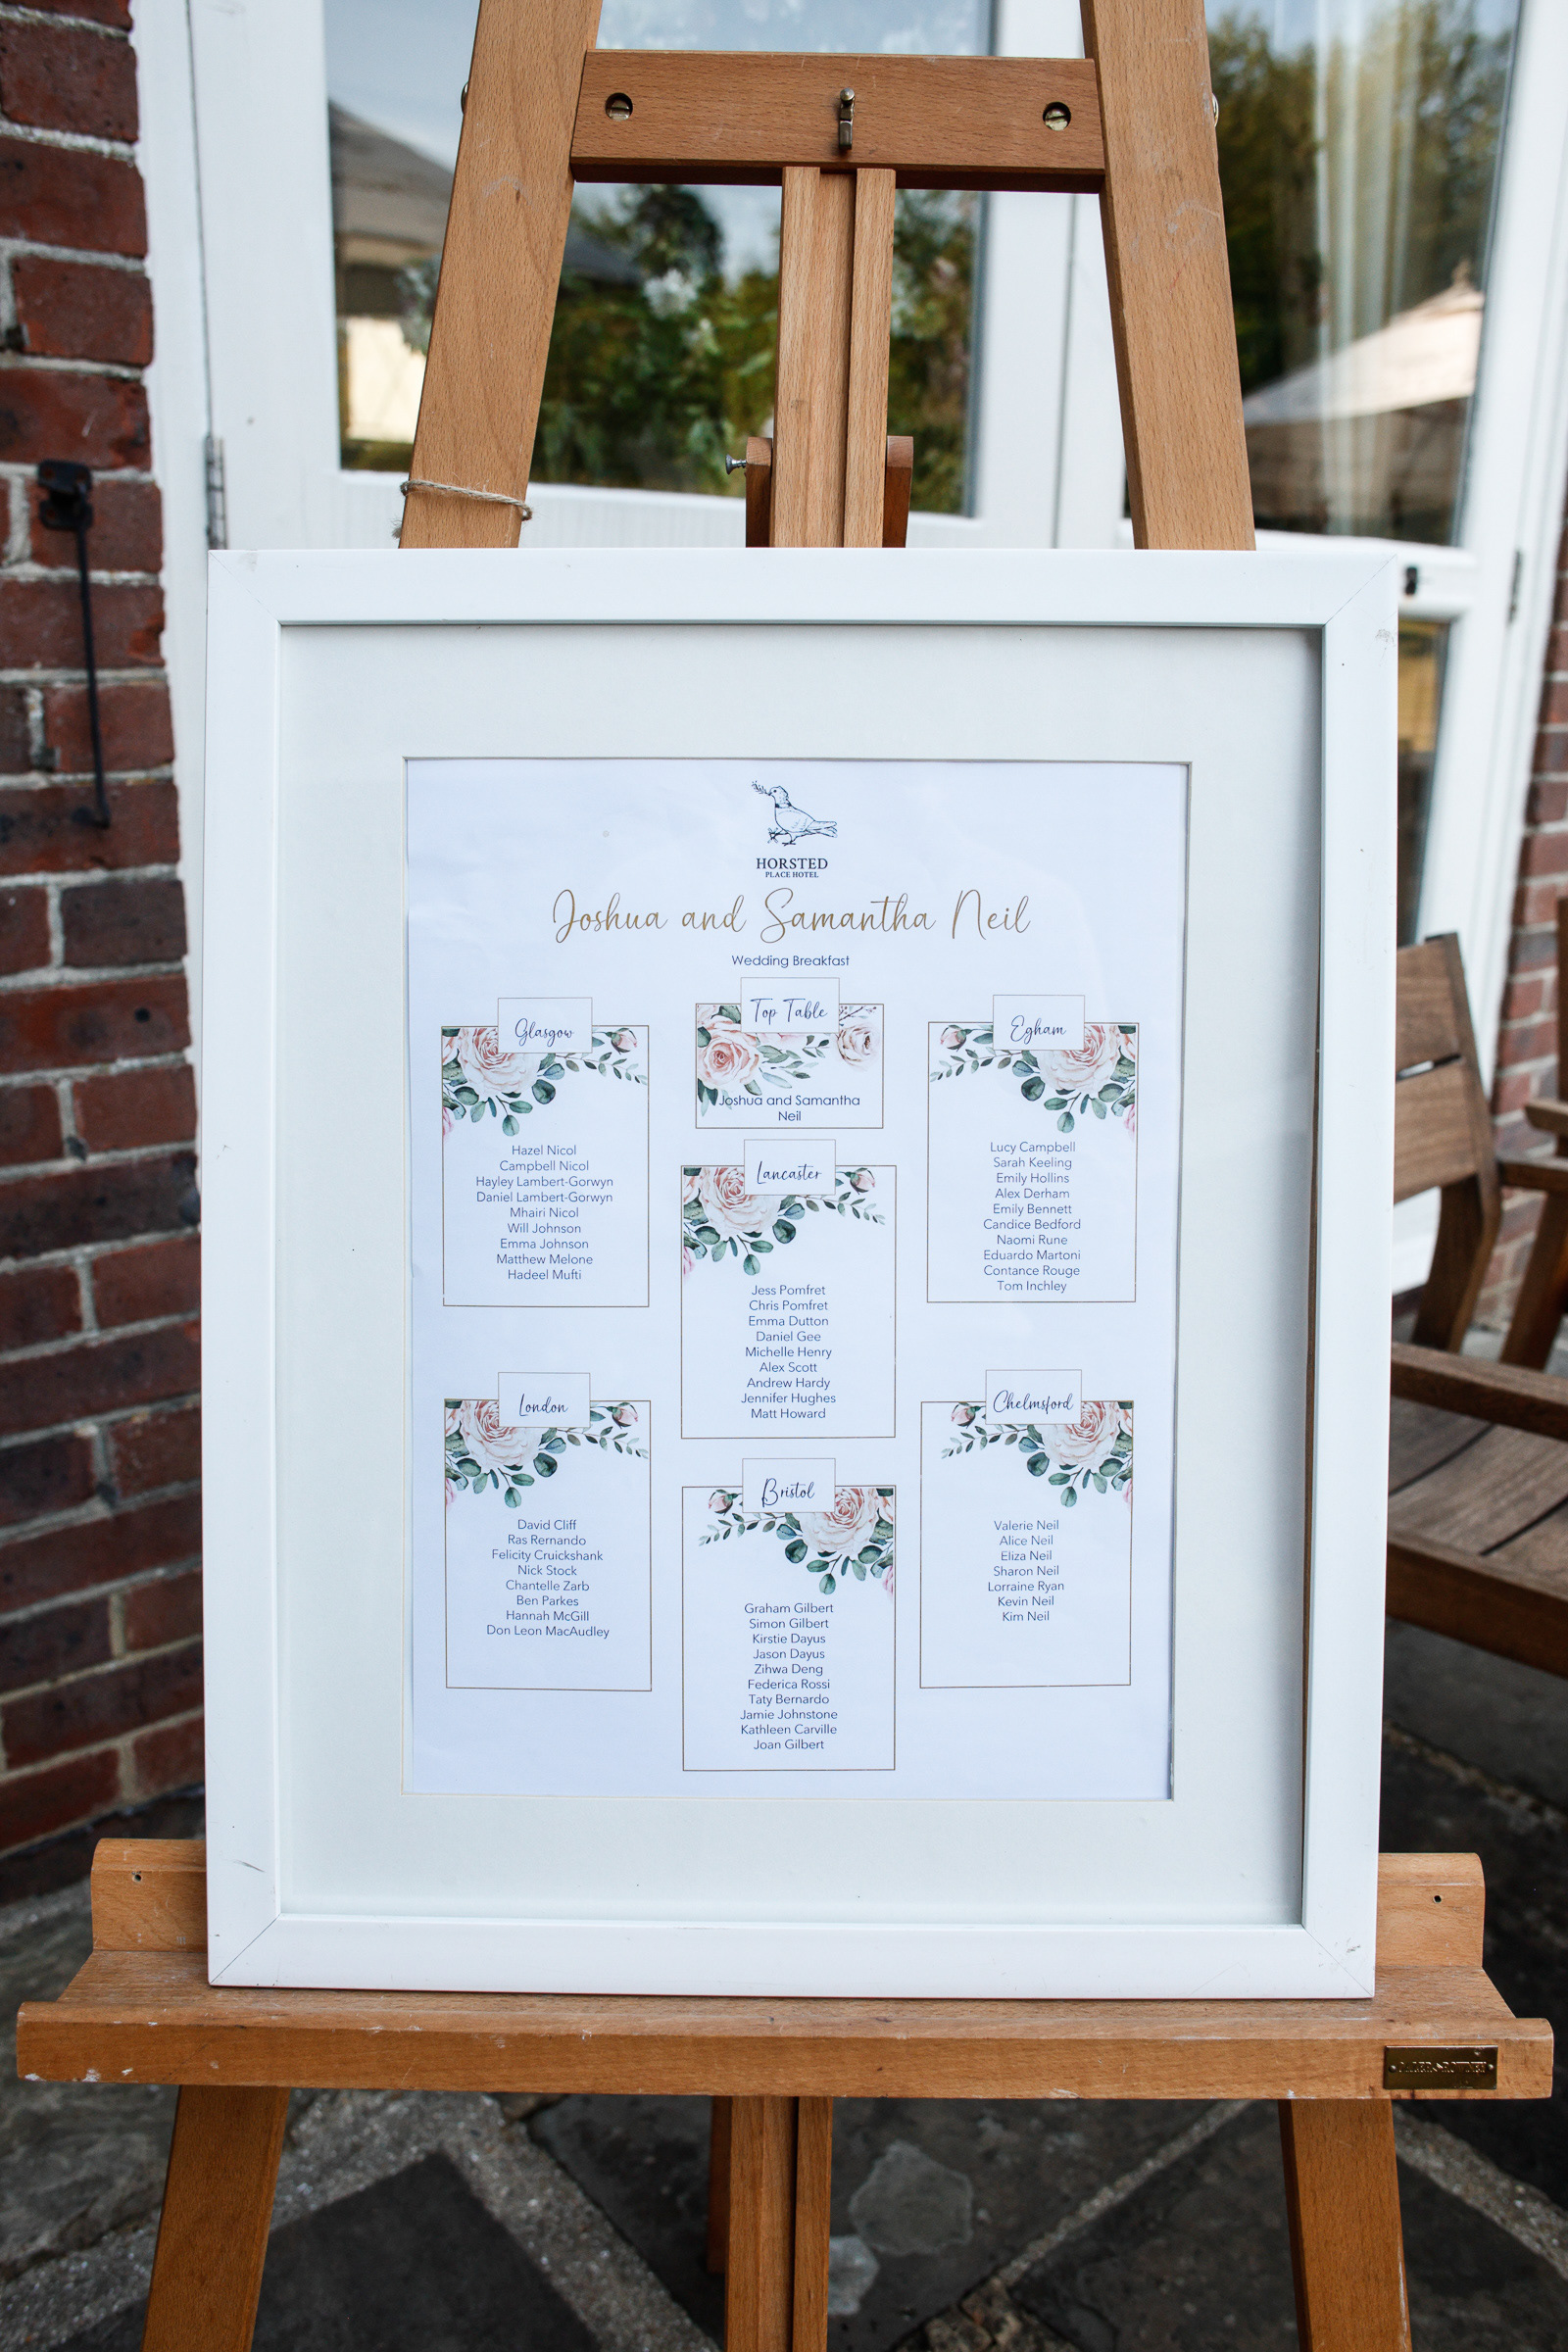 HORSTED
PLACE HOTEL
Joshua and Samantha Neil
Wedding Breakfast
Glasgow
Hazel Nicol
Campbell Nicol
Hayley Lambert-Gorwyn
Daniel Lambert-Gorwyn
Mhairi Nicol
Will Johnson
Emma Johnson
Matthew Melone
Hadeel Mufti
Top Table
Joshua and Samantha
Neil
Egham
Lucy Campbell
Sarah Keeling
Emily Hollins
Alex Derham
Emily Bennett
Candice Bedford
Naomi Rune
Eduardo Martoni
Contance Rouge
Tom Inchley
Lancaster
Jess Pomfret
Chris Pomfret
Emma Dutton
Daniel Gee
Michelle Henry
Alex Scott
Andrew Hardy
Jennifer Hughes
Matt Howard
London
David Cliff
Ras Rernando
Felicity Cruickshank
Nick Stock
Chantelle Zarb
Ben Parkes
Hannah McGill
Don Leon MacAudley
Bristol
Graham Gilbert
Simon Gilbert
Kirstie Dayus
Jason Dayus
Zihwa Deng
Federica Rossi
Taty Bernardo
Jamie Johnstone
Kathleen Carville
Joan Gilbert
Chelmsford
Valerie Neil
Alice Neil
Eliza Neil
Sharon Neil
Lorraine Ryan
Kevin Neil
Kim Neil